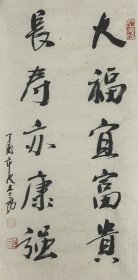 大福宜富貴
長寿亦康强
丁酉年